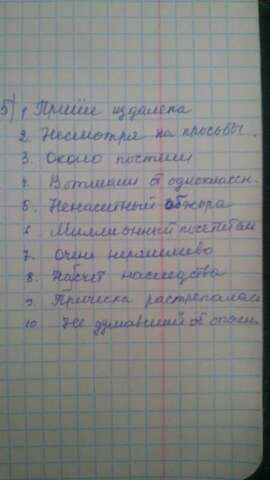 5) 1. Пришёл издалека
2. Несмотря на просьбы.
3. Около постели
4. В отличии от одноклассн.
5. Ненасытный обжора
6. Миллионный посетитель
7. Очень неряшливо
8. Насчёт наследства
9. Причёска растрепалась
10. Не думавший об опасн.